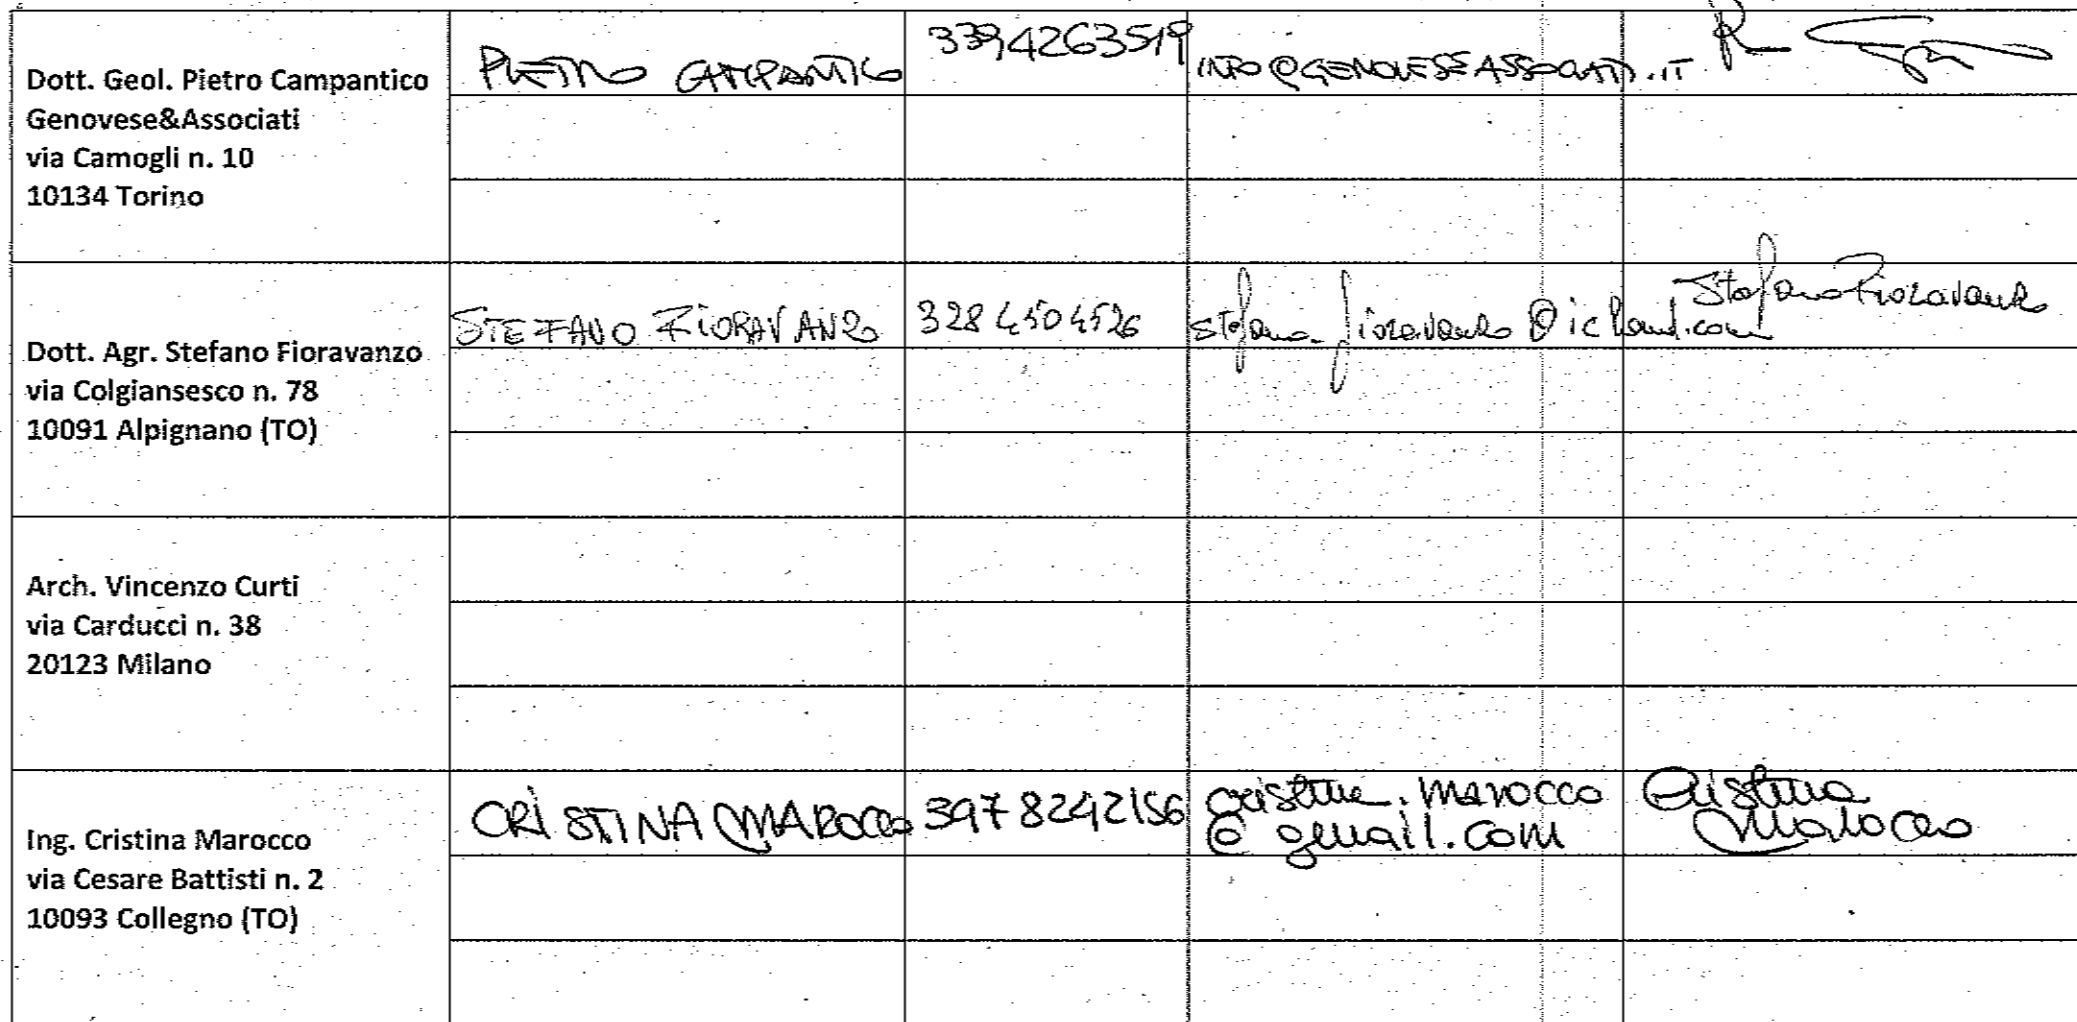 Dott. Geol. Pietro Campantico
Genovese&Associati
via Camogli n. 10
10134 Torino
PIETRO CAMPANTICO
3394263519
INFO@GENOVESEASSOCIATI.IT
Dott. Agr. Stefano Fioravanzo
via Colgiansesco n. 78
10091 Alpignano (TO)
STEFANO FIORAVANZO
328 4504526
stefano_fioravanzo@icloud.com
Stefano Fioravanzo
Arch. Vincenzo Curti
via Carducci n. 38
20123 Milano
Ing. Cristina Marocco
via Cesare Battisti n. 2
10093 Collegno (TO)
CRISTINA MAROCCO
3978242156
cristina.marocco
@gmail.com
Cristina
Marocco